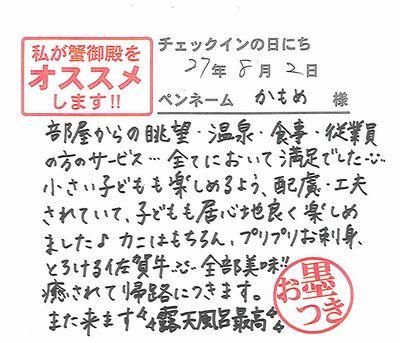 私が蟹御殿を
オススメ
します!!
チェックインの日にち
27年8月2日
ペンネーム かもめ 様
部屋からの眺望・温泉・食事・従業員
の方のサービス…全てにおいて満足でした
小さい子どもも楽しめるよう、配慮・工夫
されていて、子どもも居心地良く楽しめ
ました♪カニはもちろん、プリプリお刺身、
とろける佐賀牛 全部美味!!
癒されて帰路につきます。
また来ます 露天風呂最高
お墨つき